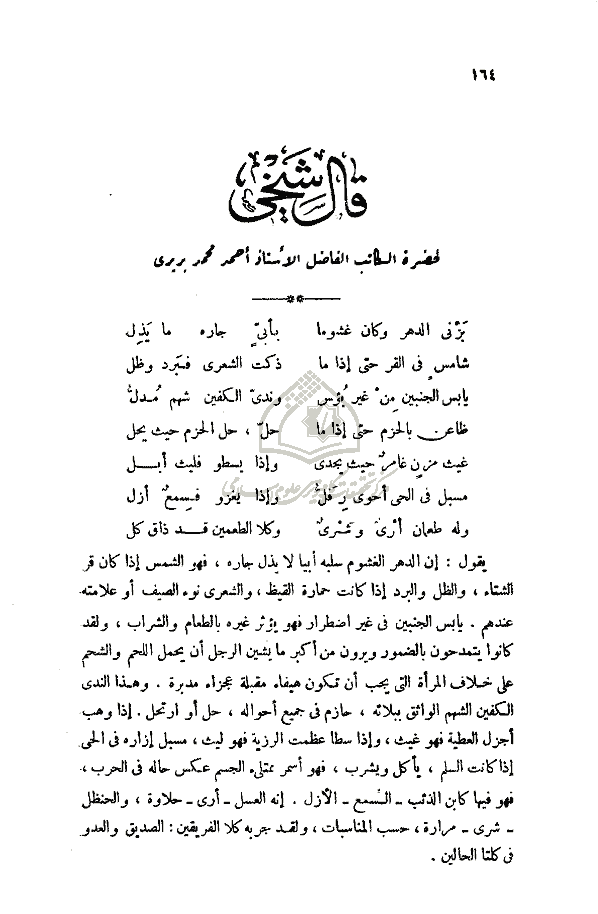 ١٦٤
قال شيخي
لحضرة الكاتب الفاضل الأستاذ أحمد محمد بريرى
بَزّنى الدهر وكان غشوما بأبىّ جاره ما يَذِل
شامس فى القر حتى إذا ما ذكت الشعرى فبَرد وظل
يابس الجنبين مِنْ غير بُؤس وندىّ الكفين شهم مُدلُّ
ظاعن بالحزم حتى إذا ما حلّ ، حل الحزم حيث يحل
غيث مزنٍ غامرٌ حيث يجدى وإذا يسطو فليث أبل
مسبل فى الحى أحوى رِفَلُّ وإذا يغزو فسِمعٌ أزل
وله طعمان أرىٌ وشرىٌ وكلا الطعمين قد ذاق كل
يقول : إن الدهر الغشوم سلبه أبيا لا يذل جاره ، فهو الشمس إذا كان قر
الشتاء ، والظل والبرد إذا كانت حمارة القيظ ، والشعرى نوء الصيف أو علامته
عندهم . يابس الجنبين فى غير اضطرار فهو يؤثر غيره بالطعام والشراب ، ولقد
كانوا يتمدحون بالضمور ويرون من أكبر ما يشين الرجل أن يحمل اللحم والشحم
على خلاف المرأة التى يجب أن تكون هيفاء مقبلة عجزاء مدبرة . وهذا الندى
الكفين الشهم الواثق ببلائه ، حازم فى جميع أحواله ، حل أو ارتحل . إذا وهب
أجزل العطية فهو غيث ، وإذا سطا عظمت الرزية فهو ليث ، مسبل إزاره فى الحى
إذا كانت السلم ، يأكل ويشرب ، فهو أسمر ممتلىء الجسم عكس حاله فى الحرب ،
فهو فيها كابن الذئب ـ السمع ـ الأزل . إنه العسل ـ أرى ـ حلاوة ، والحنظل
ـ شرى ـ مرارة ، حسب المناسبات ، ولقد جربه كلا الفريقين : الصديق والعدو
فى كلتا الحالين .